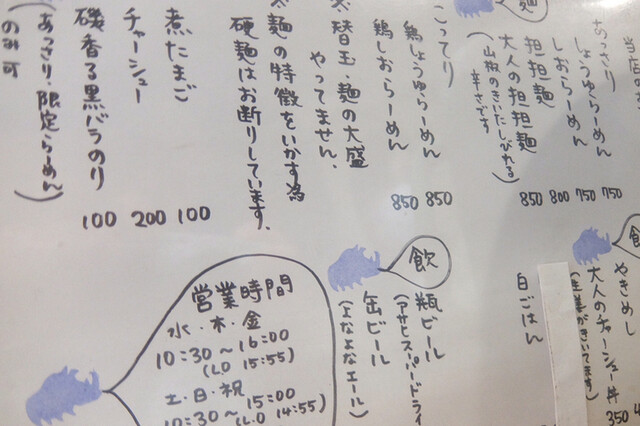 麺
当店の
あっさり
しょうゆらーめん 750
しおらーめん 750
担担麺 800
大人の担担麺 850
(山椒のきいたしびれる
辛さです)
こってり
鶏しょうゆらーめん 850
鶏しおらーめん 850
替玉、麺の大盛
やってません。
麺の特徴をいかす為
硬麺はお断りしています。
煮たまご 100
チャーシュー 200
磯香る黒バラのり 100
(あっさり、限定らーめん)
のみ可
やきめし
大人のチャーシュー丼 350
(生姜がきいてます)
白ごはん
飲
瓶ビール
(アサヒスーパードライ
缶ビール
(よなよなエール)
営業時間
水・木・金
10:30～16:00
(L.O 15:55)
土・日・祝
10:30～15:00
(L.O 14:55)